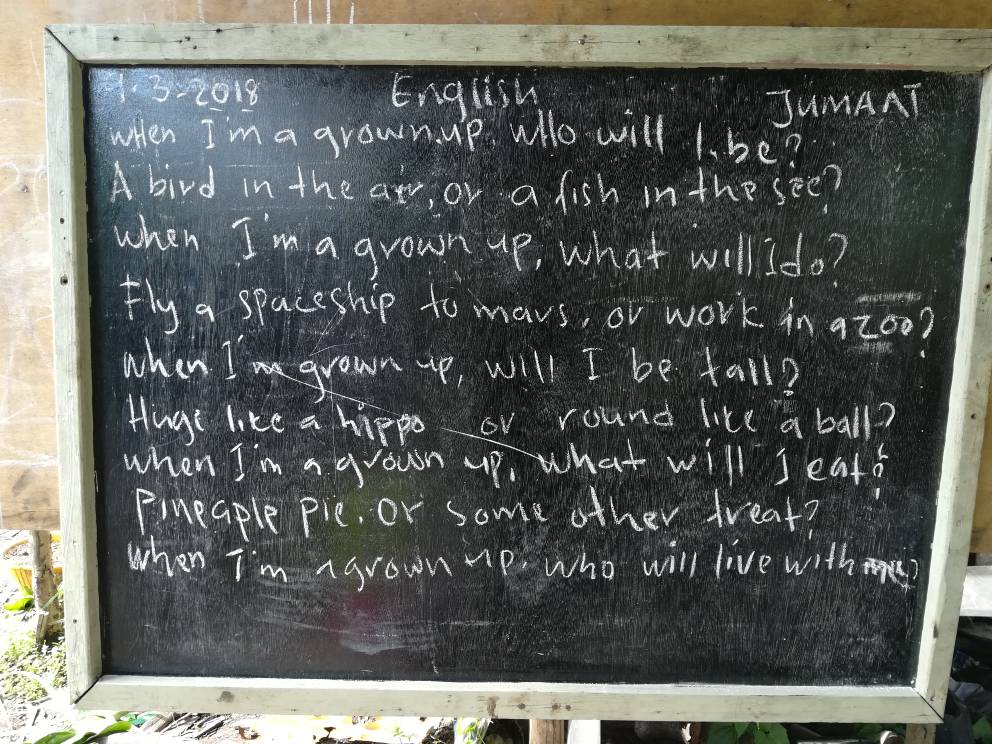 1-3-2018 English JUMAAT
when I'm a grown.up. who will I.be?
A bird in the air, or a fish in the see?
when I'm a grown up, what will I do?
Fly a spaceship to mars, or work in a zoo?
when I'm grown up, will I be tall?
Huge like a hippo or round like a ball?
when I'm a grown up, what will I eat?
Pineaple pie. Or some other treat?
when I'm a grown up. who will live with me?